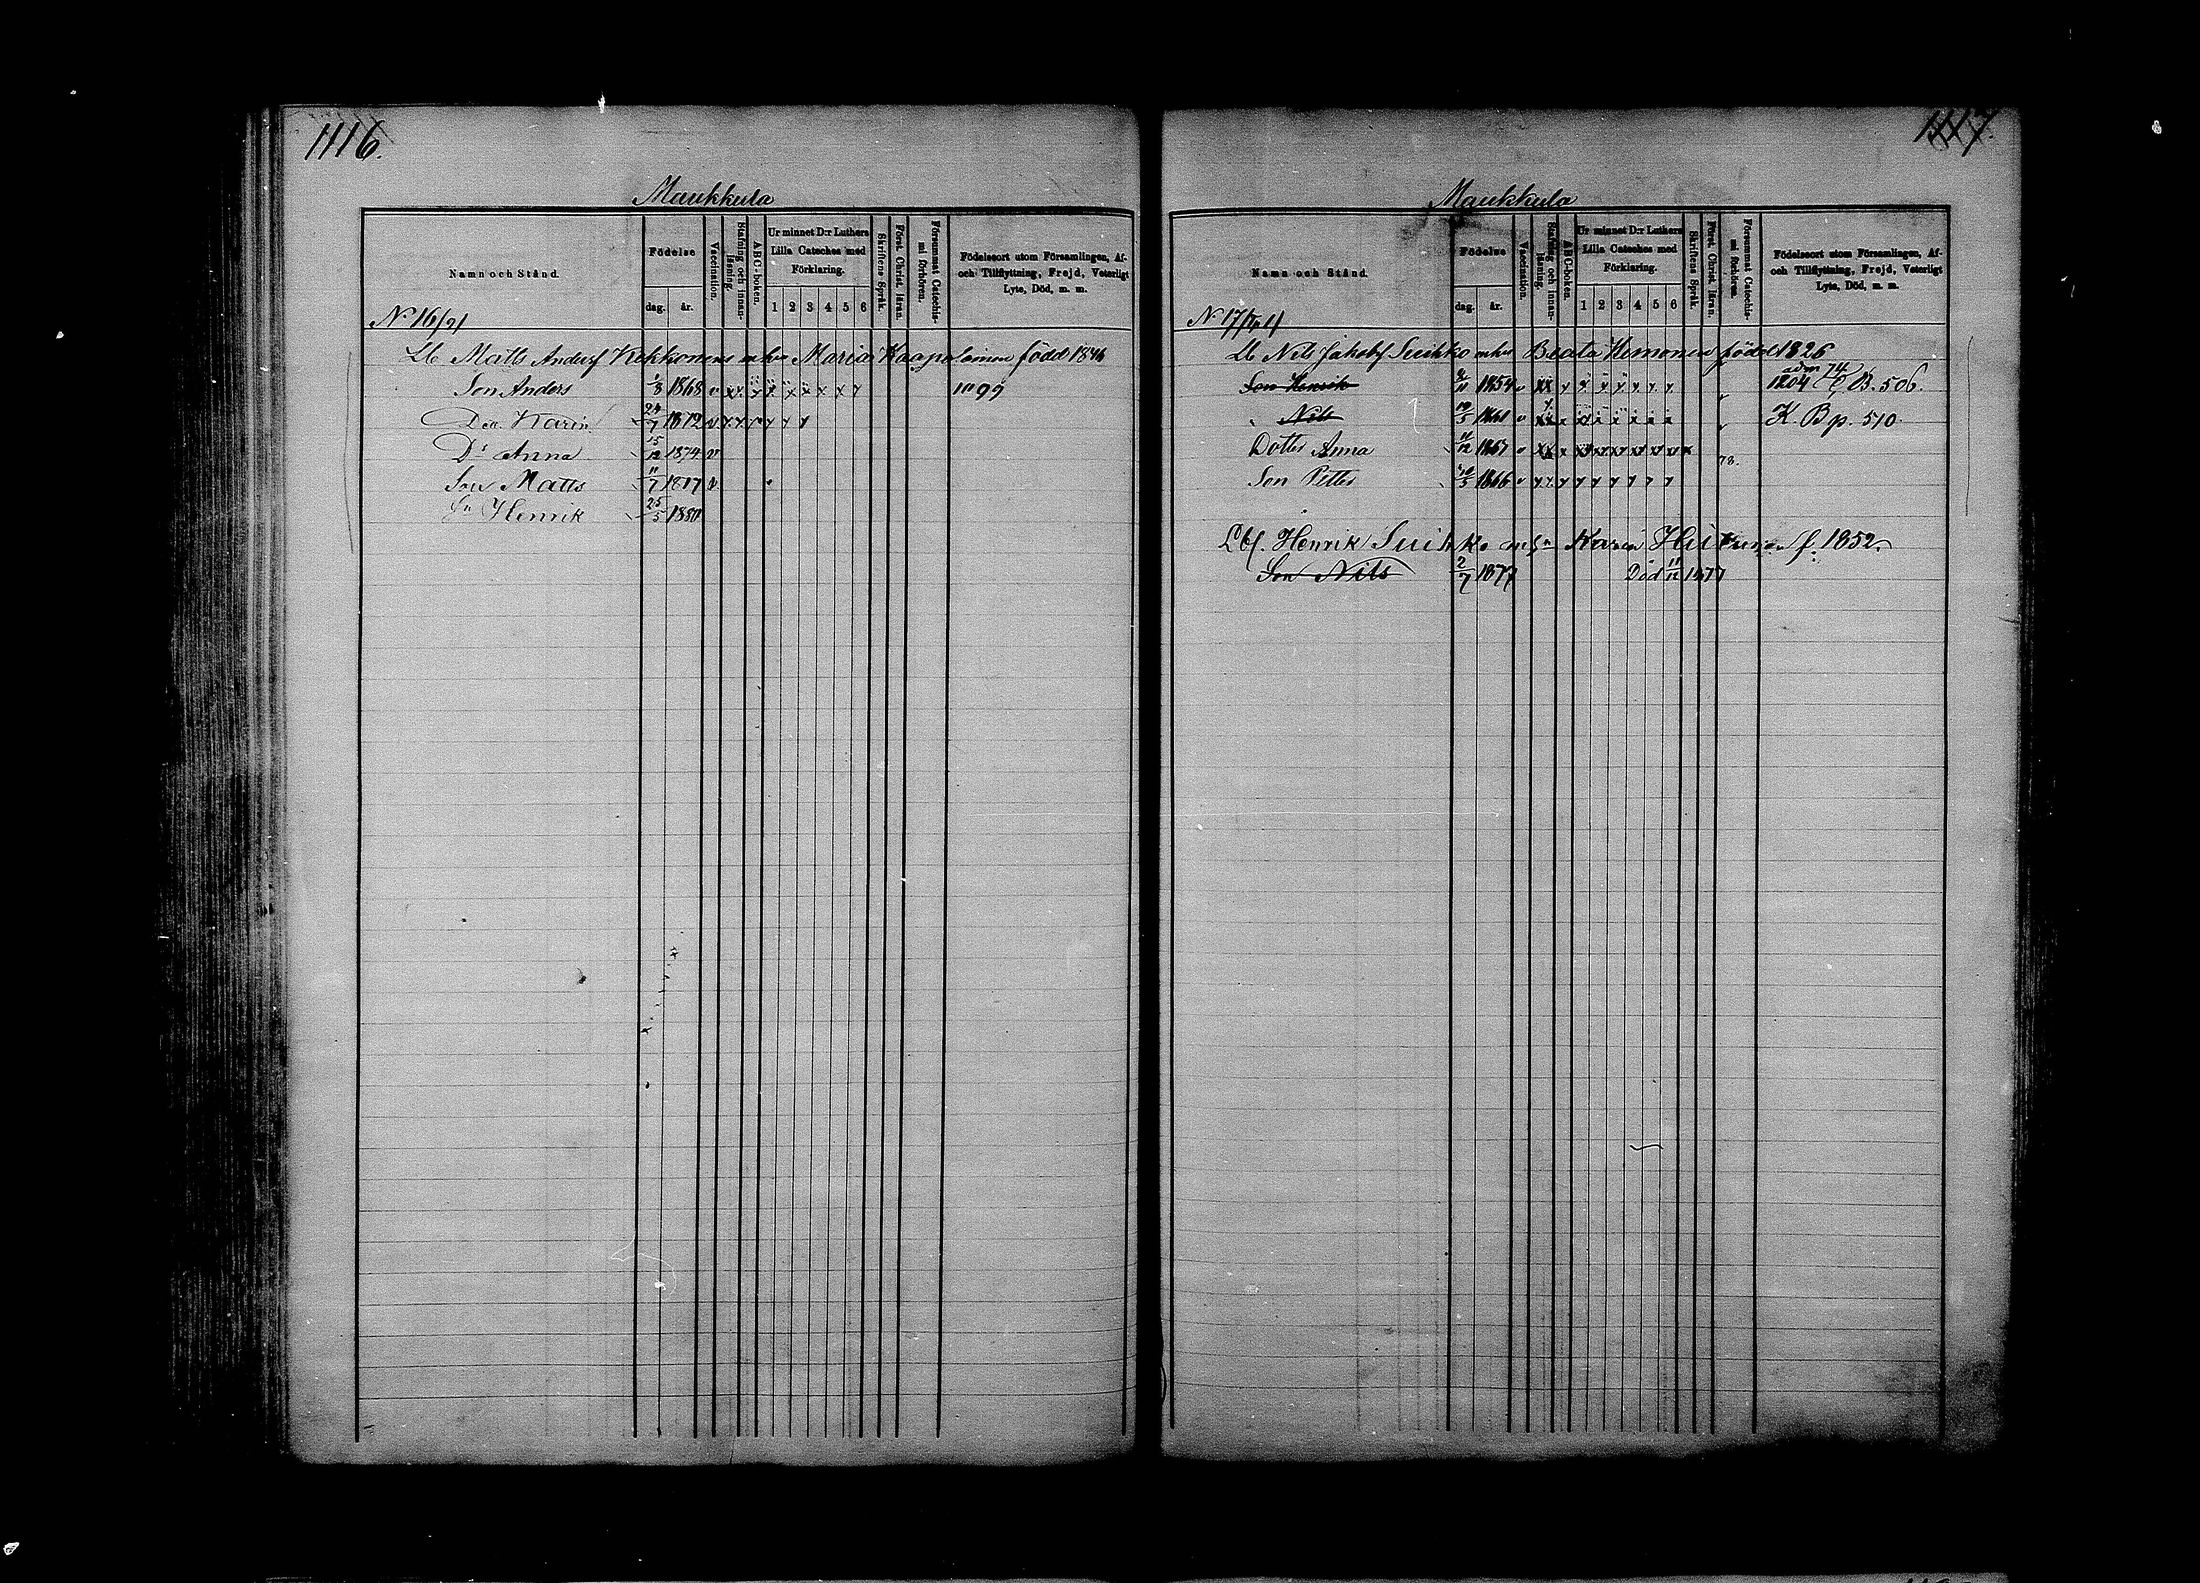 1116.
Maukkula
Namn och Stånd.
Födelse
dag. år.
Vaccination.
Stafning och innanläsning.
ABC-boken.
Ur minnet D:r Luthers Lilla Cateches med Förklaring.
1 2 3 4 5 6
Skriftens Språk.
Först. Christ. läran.
Försummat Catechismi förhören.
Födelseort utom Församlingen, Af- och Tillflyttning, Frejd, Veterligt Lyte, Död, m. m.
No 16/2/
Lb Matts Andersf Kekkonens mhu Maria Kaapolainen född 1846
Son Anders 1/3 1868 v 1099
Dr Karin 24/7 1872 v
Dr Anna 15/12 1874 v
Son Matts 11/7 1877 v
Sn Henrik 25/5 1880
1117.
Maukkula
Namn och Stånd.
Födelse
dag. år.
Vaccination.
Stafning och innanläsning.
ABC-boken.
Ur minnet D:r Luthers Lilla Cateches med Förklaring.
1 2 3 4 5 6
Skriftens Språk.
Först. Christ. läran.
Försummat Catechismi förhören.
Födelseort utom Församlingen, Af- och Tillflyttning, Frejd, Veterligt Lyte, Död, m. m.
No 17
Lb Nils Jakobsf Suihko mhu Beata Himonen född 1826
Son Henrik 1854 v adm 74 1204 B. 506.
Nils 1861 v K. B p. 510.
Dotter Anna 11/12 1857 v 78.
Son Petter 1866 v
Lbf. Henrik Suihko mhn Karin f. 1852.
Son Nils 2/7 1877 Död 11/12 1877